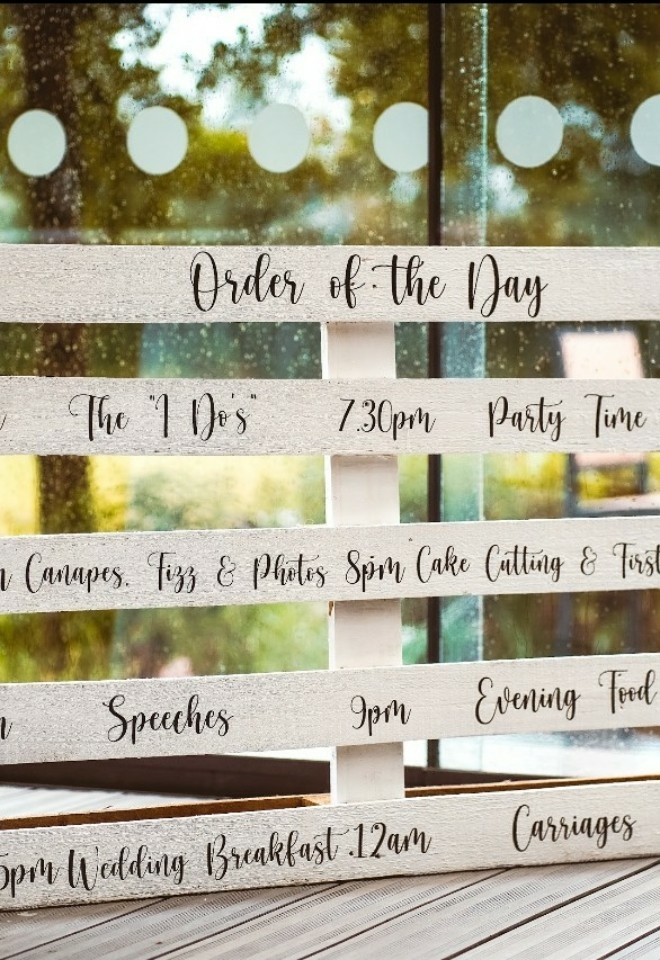 Order of the Day
The "I Do's" 7.30pm Party Time
Canapes. Fizz & Photos 8pm Cake Cutting & First
Speeches 9pm Evening Food
5pm Wedding Breakfast 12am Carriages